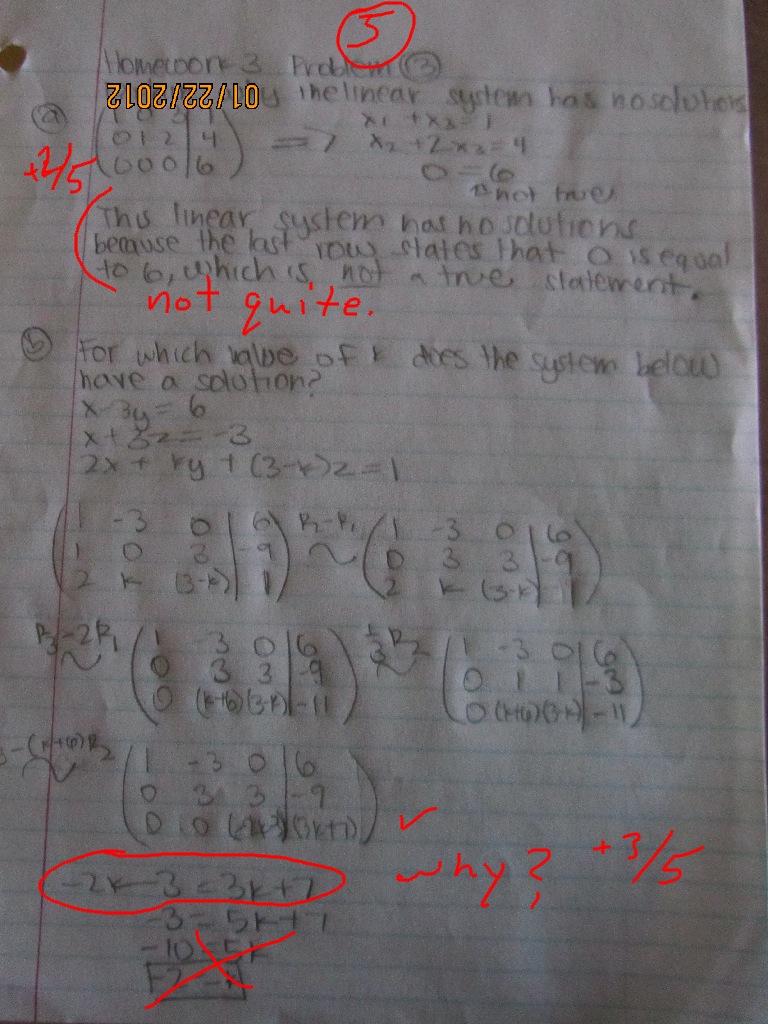 5
Homework 3 Problem 3
01/22/2012
the linear system has no solutions
a
+2/5
0 1 2 | 4
0 0 0 | 6
=>
x1 + x3 = 1
x2 + 2x3 = 4
0 = 6
not true
This linear system has no solutions
because the last row states that 0 is equal
to 6, which is not a true statement.
not quite.
b For which value of k does the system below
have a solution?
x-3y = 6
x+3z = -3
2x + ky + (3-k)z = 1
1 -3 0 | 6
1 0 3 | -9
2 k (3-k) | 1
R2-R1
~
1 -3 0 | 6
0 3 3 | -9
2 k (3-k) | 1
R3-2R1
~
1 -3 0 | 6
0 3 3 | -9
0 (k+6) (3-k) | -11
1/3 R2
~
1 -3 0 | 6
0 1 1 | -3
0 (k+6) (3-k) | -11
-(k+6)R2
~
1 -3 0 | 6
0 3 3 | -9
0 0 (-2k-3) (3k+7)
-2k-3 = 3k+7
why? +3/5
-3 = 5k+7
-10 = 5k